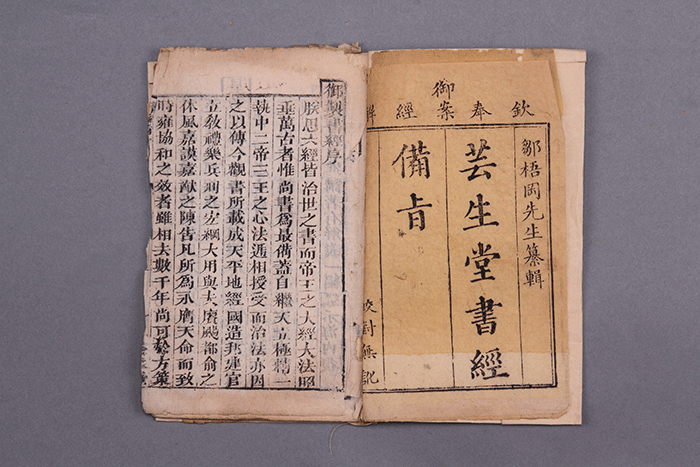 欽奉御案經解
鄒梧岡先生纂輯
芸生堂書經
備旨
校對無訛
御製書經序
朕思六經皆治世之書而帝王之大經大法昭
垂萬古者惟尚書為最備蓋自繼天立極精一
執中二帝三王之心法遞相授受而治法亦因
之以傳今觀書所載成天平地經國造邦建官
立敎禮樂兵刑之宏綱大用與夫賡颺都俞之
休風嘉謨嘉猷之陳告凡所為永膺天命而致
時雍協和之效者雖相去數千年尚可於方策